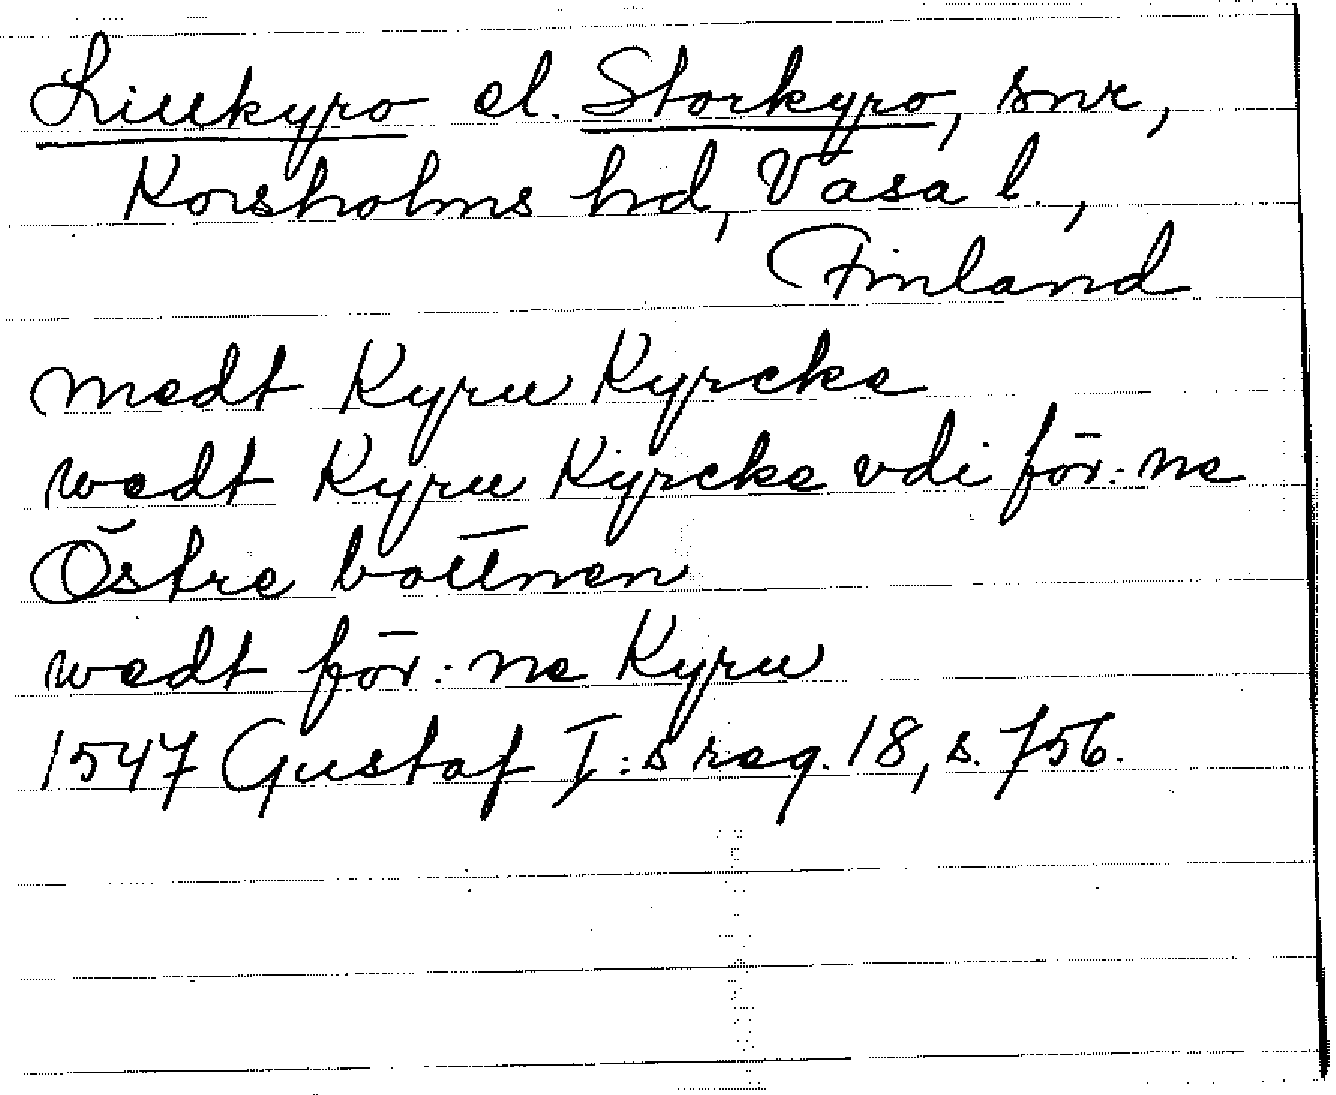 Lillkyro el. Storkyro, snr,
Korsholms hd, Vasa l.,
Finland
medt Kyru Kyrcke
wedt Kyru Kyrcke vdi för̄:ne
Östre bottnen
wedt för̄:ne Kyru
1547 Gustaf I:s reg. 18, s. 756.